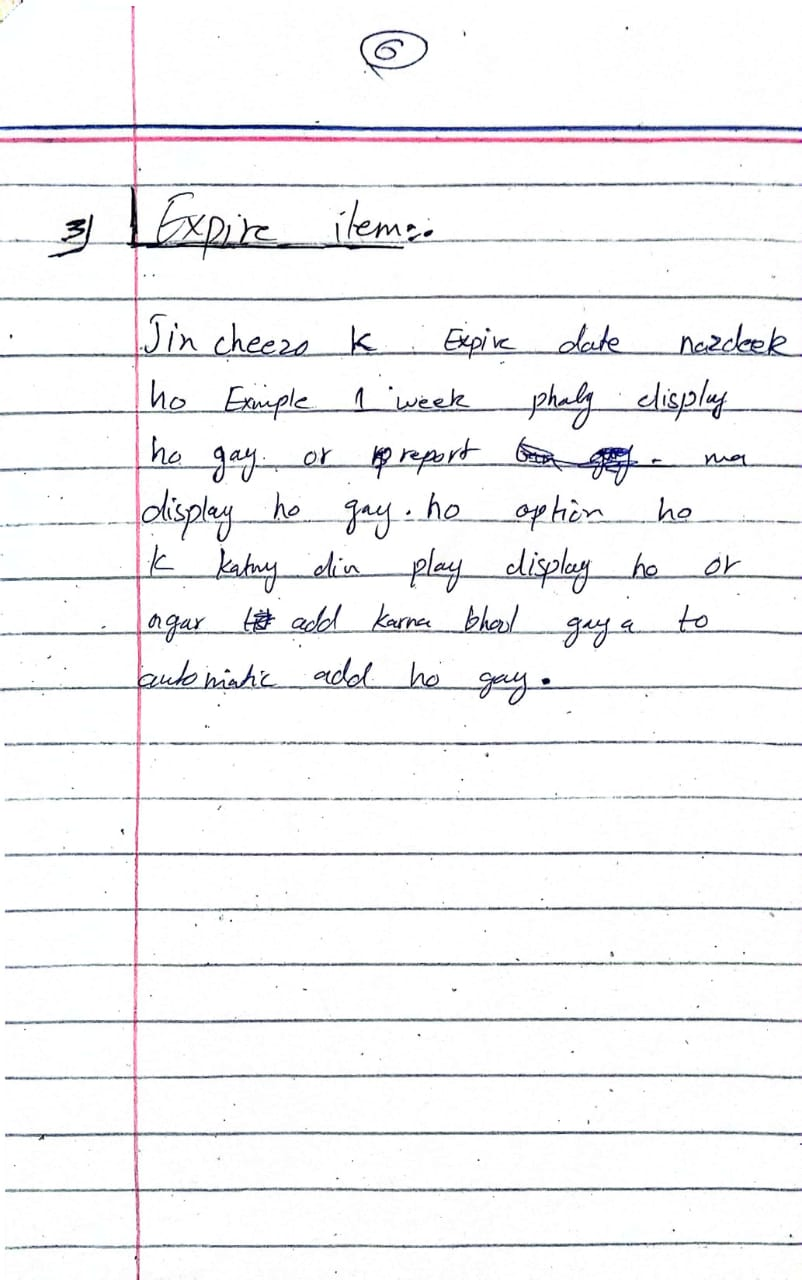 6
3) Expire item:.
Jin cheezo k Expire date nazdeek
ho Exmple 1 week phaly display
ho gay. or report ma
display ho gay. ho option ho
k katny din play display ho or
agar add karna bhool gaya to
automatic add ho gay.